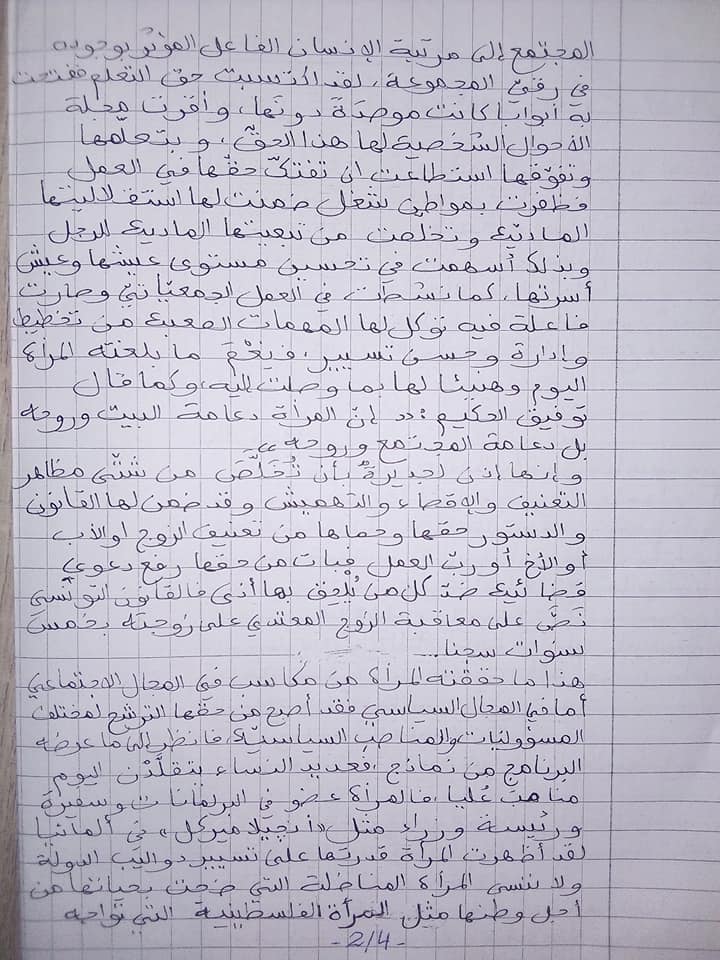 المجتمع إلى مرتبة الإنسان الفاعل المؤثّر بوجوده
في رقيّ المجموعة، لقد اكتسبت حق التعلم ففتحت
به أبوابا كانت موصدة دونها، وأقرت مجلة
الأحوال الشخصية لها هذا الحقّ، وبتعلّمها
وتفوّقها استطاعت ان تفتكّ حقّها في العمل
فظفرت بمواطن شغل ضمنت لها استقلاليتها
المادّية وتخلصت من تبعيتها المادية للرجل
وبذلك أسهمت في تحسين مستوى عيشها وعيش
أسرتها، كما نشطت في العمل الجمعيّاتيّ وصارت
فاعلة فيه توكل لها المهمات الصعبة من تخطيط
وإدارة وحسن تسيير، ونِعْمَ ما بلغته المرأة
اليوم وهنيئا لها بما وصلت إليه، وكما قال
توفيق الحكيم: «إنّ المرأة دعامة البيت وروحه
بل دعامة المجتمع وروحه»
وإنها إذن لجديرةٌ بأن تُخَلَّصَ من شتّى مظاهر
التعنيف والإقصاء والتهميش وقد ضمن لها القانون
والدستور حقها وحماها من تعنيف الزوج او الأب
أو الأخ أو ربّ العمل فبات من حقها رفع دعوى
قضائية ضدّ كل من يُلْحِق بها أذى فالقانون التونسي
نصّ على معاقبة الزوج المعتدي على زوجته بخمس
سنوات سجنا...
هذا ما حققته المرأة من مكاسب في المجال الاجتماعي
أما في المجال السياسي فقد أصبح من حقّها الترشح لمختلف
المسؤوليات والمناصب السياسيّة، فانظر إلى ما عرضه
البرنامج من نماذج، فعديد النساء يتقلّدن اليوم
مناصبَ عُليا، فالمرأة عضو في البرلمانات وسفيرة
ورئيسة وزراء مثل «أنجيلا ميركل» في ألمانيا
لقد أظهرت المرأة قدرتها على تسيير دواليب الدولة
ولا ننسى المرأة المناضلة التي ضحت بحياتها من
أجل وطنها مثل المرأة الفلسطينية التي تواجه
- 2/4 -